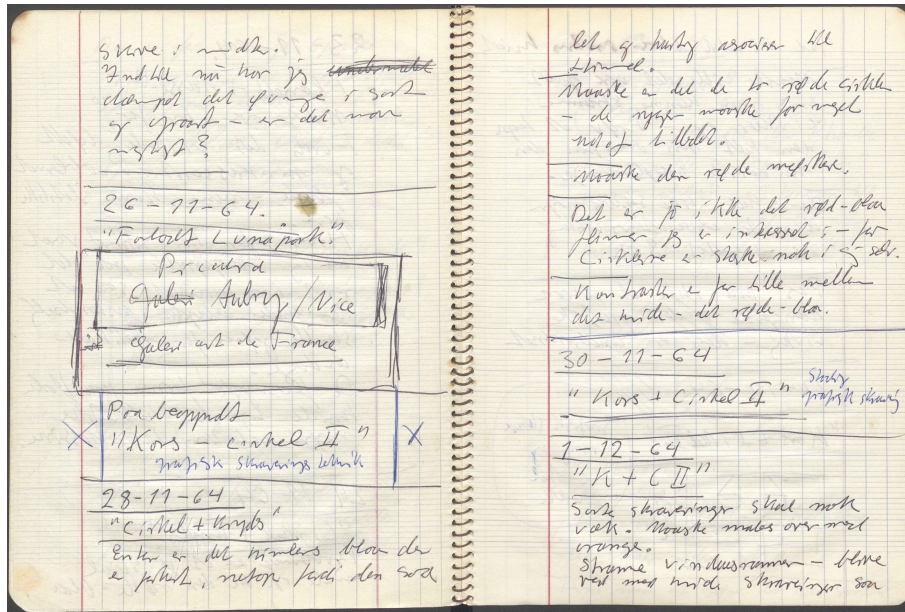 skrive i midten.
Indtil nu har jeg
dæmpet det øvrige i sort
og graat – er det nu
26-11-64.
"Forladt Lunapark."
Picabia
Galeri Aubry / Nice
Galeri art de France
Paa begyndt
X "Kors – cirkel II" X
grafisk skraverings teknik
28-11-64
"Cirkel + Kryds"
Enten er det himlens blaa der
er forkert, netop fordi den saa
let og hurtig asocierer til
himmel.
Maaske er det de to røde cirkler
– de ryger maaske for meget
ud af billedet.
Maaske den røde
Det er jo ikke det rød-blaa
flimmer jeg er interesseret i – for
Cirklerne er stærke nok i sig selv.
Kontrasten er for lille mellem
det hvide – det røde-blaa.
30-11-64
"Kors + Cirkel II" Stadig
grafisk skravering
1-12-64
"K + C II"
Sorte skraveringer skal nok
væk. Maaske males over med
orange.
Stramme vinduesrammer – blive
ved med hvide skraveringer saa